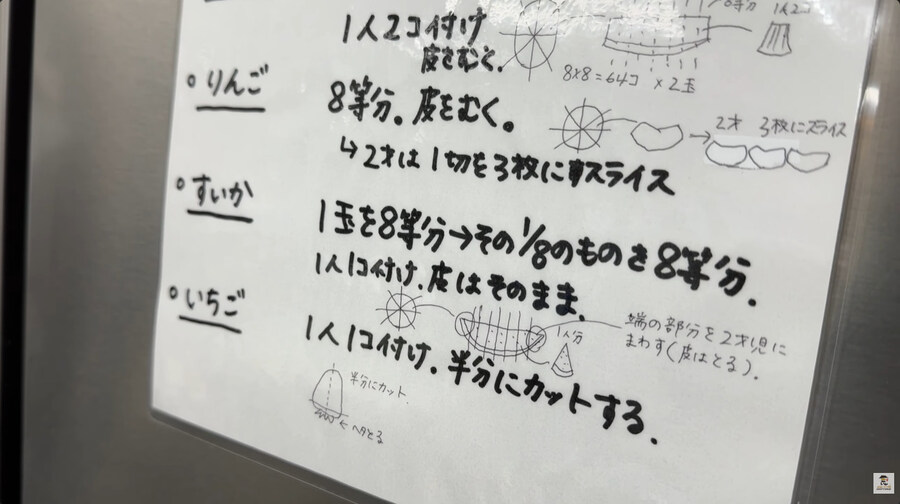 1人2コ付け
皮をむく.
8×8=64コ ×2玉
1人2コ
・りんご
8等分。皮をむく。
2才 3枚にスライス
↳2才は1切を3枚にすスライス
・すいか
1玉を8等分→その1/8のものを8等分.
1人1コ付け.皮はそのまま.
1人分
端の部分を2才児に
まわす(皮はとる).
・いちご
1人1コ付け.半分にカットする.
半分にカット.
←ヘタとる